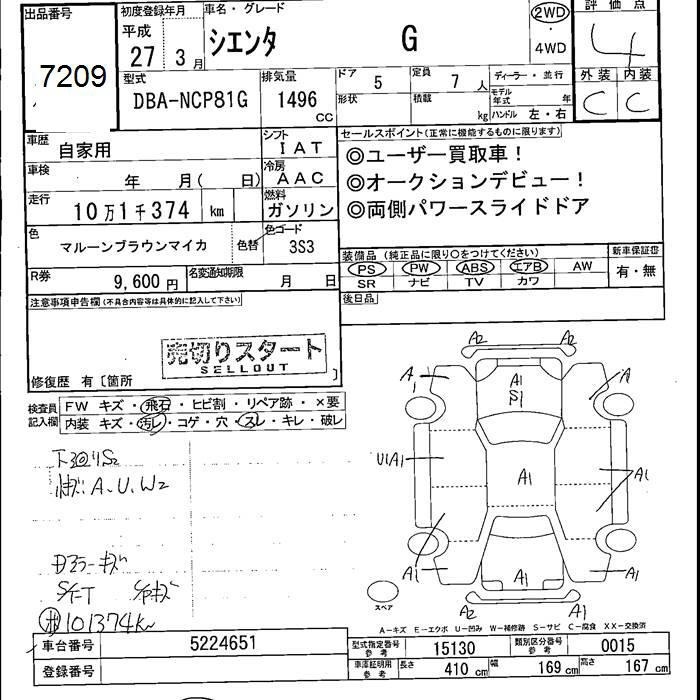 出品番号
7209
初度登録年月
平成
27 3月
車名・グレード
シエンタ G
2WD
・
4WD
評価点
4
型式
DBA-NCP81G
排気量
1496 CC
ドア 5
定員 7 人
ディーラー・並行
形状
積載 kg
モデル年式 年
ハンドル 左・右
外装 内装
C C
車歴
自家用
シフト
IAT
セールスポイント(正常に機能するものに限ります)
◎ユーザー買取車!
◎オークションデビュー!
◎両側パワースライドドア
車検
年 月( 日)
冷房
AAC
走行
10万1千374 km
燃料
ガソリン
色
マルーンブラウンマイカ
色替
色コード
3S3
装備品(純正品に限り○をつけてください)
PS PW ABS エアB AW
SR ナビ TV カワ
新車保証書
有・無
R券
9,600円
名変通知期限
月 日
後日品
注意事項申告欄(不具合内容等は具体的に記入して下さい)
売切りスタート
SELLOUT
修復歴 有〔箇所 〕
検査員記入欄
FW キズ・飛石・ヒビ割・リペア跡・×要
内装 キズ・汚レ・コゲ・穴・スレ・キレ・破レ
下廻りS2
A、U、W2
101374km
A2 A2
A1 A1
A1
S1
U1A1 A1 A1
A1 A1
A1
A2 A1
スペア
A-キズ E-エクボ U-凹み W-補修跡 S-サビ C-腐食 XX-交換済
車台番号
5224651
型式指定番号
参考
15130
類別区分番号
参考
0015
登録番号
車庫証明用
参考
長さ 410 cm 幅 169 cm 高さ 167 cm